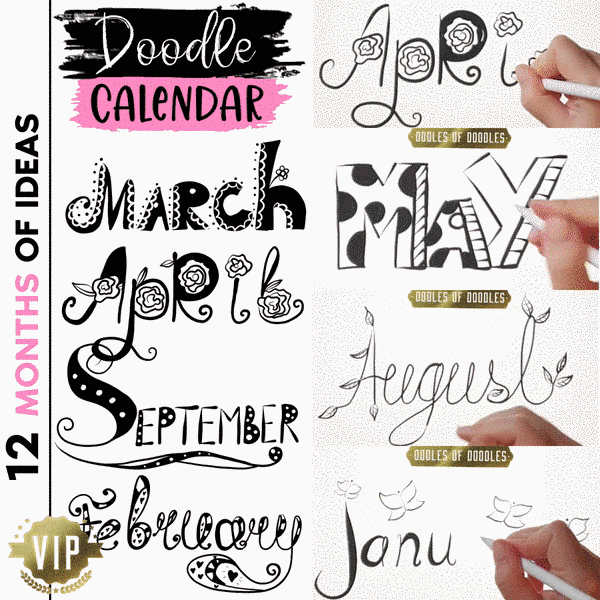 Doodle
CALENDAR
12 MONTHS OF IDEAS
MARCH
APRil
SEPTEMBER
February
VIP
APRi
OODLES OF DOODLES
MAY
OODLES OF DOODLES
August
OODLES OF DOODLES
Janu